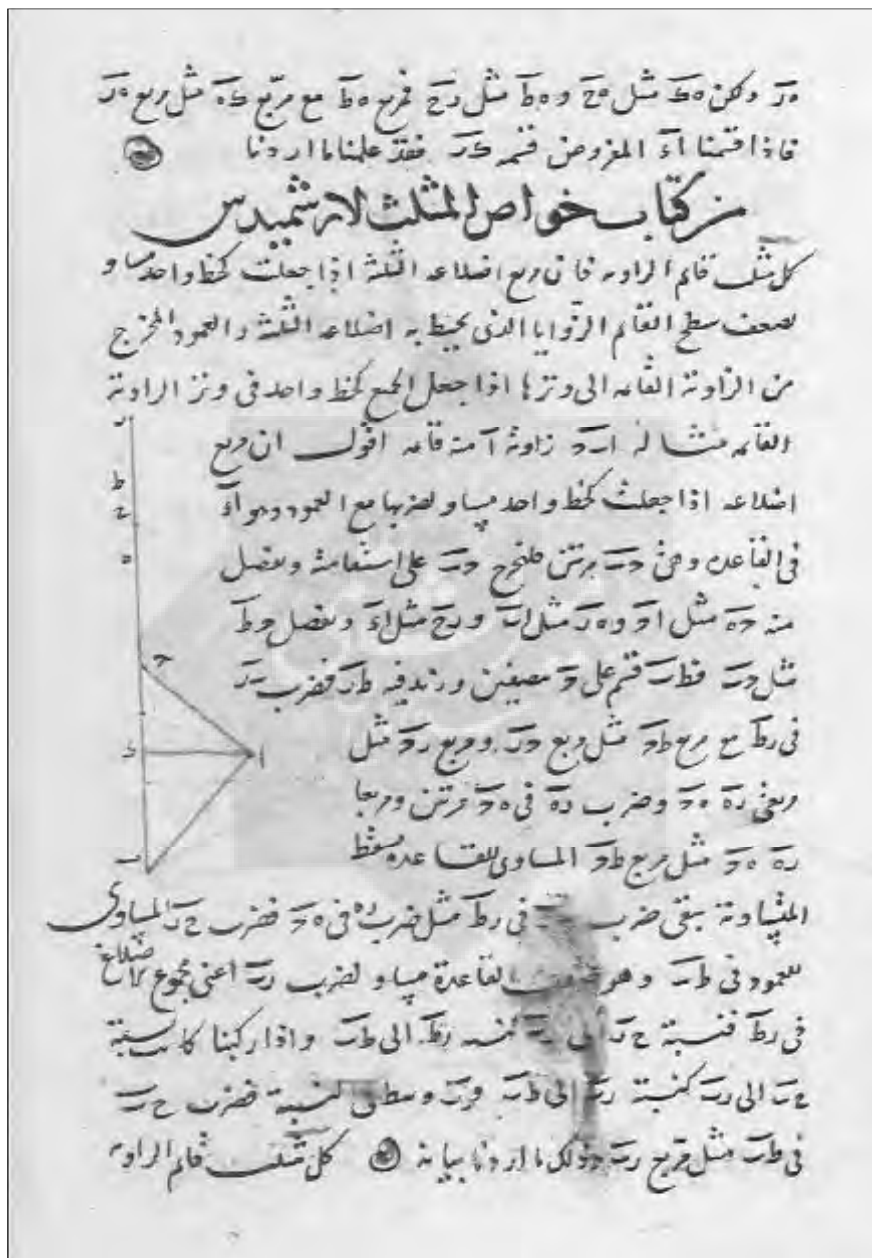 ه‍ر ولكن ه‍ك مثل ه‍ح و ه‍ط مثل رح فمربع ه‍ط مع مربع ك‍ه مثل مربع ه‍ر
فاذا قسمنا اد المفروض قسمه ك‍ر فقد علمنا ما اردنا
من كتاب خواص المثلث لارشميدس
كل مثلث قائم الزاويه فان مربع اضلاعه الثلثة اذا جعلت كخط واحد مساو
لضعف سطح القائم الزوايا الذى يحيط به اضلاعه الثلثة والعمود المخرج
من الزاوية القائمه الى وترها اذا جعل الجمع كخط واحد فى وتر الزاوية
القائمه مثاله اب‍ح زاوية ا منه قائمه اقول ان مربع
اضلاعه اذا جعلت كخط واحد مساو لضربها مع العمود وهو اء
فى القاعده وهى ح‍ب مرتين فلنخرج ح‍ب على استقامة ونفصل
منه ح‍ه مثل اح و ه‍ر مثل اب و رح مثل اء ونفصل ح‍ط
مثل ح‍ب فط‍ب قسم على ح بنصفين وزيد فيه ط‍ر فضرب ب‍ر
فى رط مع مربع ط‍ح مثل مربع ح‍ر ومربع رح مثل
مربعى ر‍ه ه‍ح وضرب ر‍ه فى ه‍ح مرتين ومربعا
ر‍ه ه‍ح مثل مربع ط‍ح المساوى للقاعده فيسقط
المتساوية يبقى ضرب فى رط مثل ضرب ر‍ه فى ه‍ح فضرب ح‍ر المساوى
للعمود فى ط‍ب وهو القاعدة مساو لضرب رب اعنى مجموع الاضلاع
فى رط فنسبة ح‍ر الى رب كنسبه رط الى ط‍ب واذا ركبنا كانت نسبة
ح‍ب الى رب كنسبة رب الى ط‍ب فرب وسط نسبة فضرب ح‍ب
فى ط‍ب مثل مربع رب وذلك ما اردنا بيانه كل مثلث قائم الزاويه
ر
ط
ح
ه
ح
ا
ء
ب